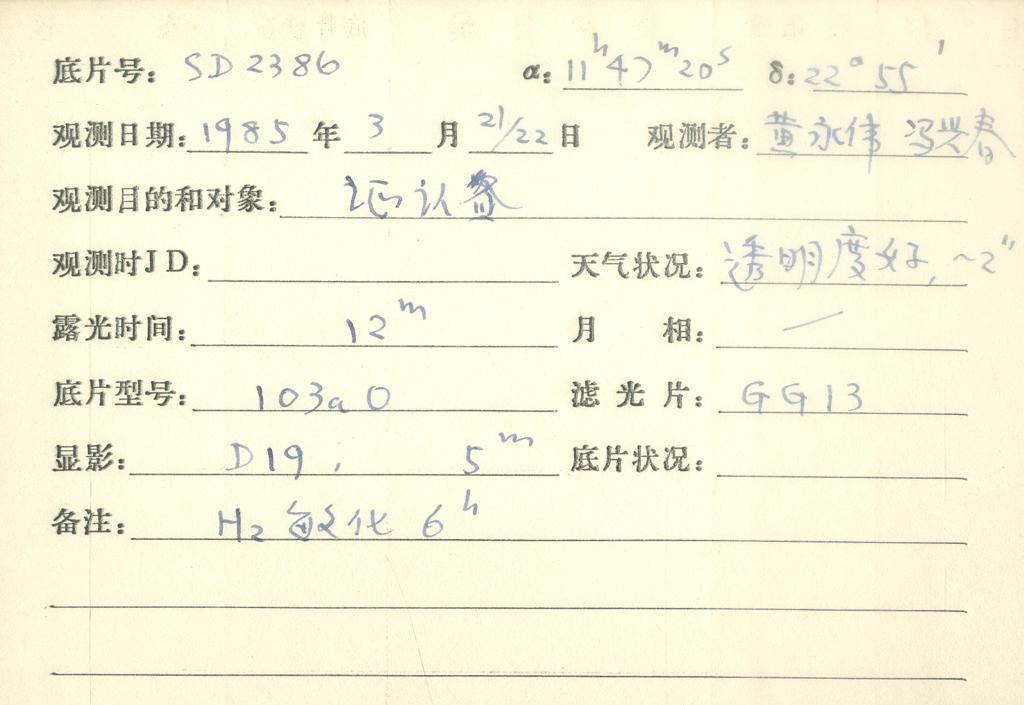 底片号: SD2386 α: 11h47m20s δ: 22°55'
观测日期: 1985 年 3 月 21/22 日 观测者: 黄永伟 冯兴春
观测目的和对象: 证认
观测时JD: 天气状况: 透明度好, ~2"
露光时间: 12m 月 相: —
底片型号: 103aO 滤光片: GG13
显影: D19, 5m 底片状况:
备注: H2 敏化 6h